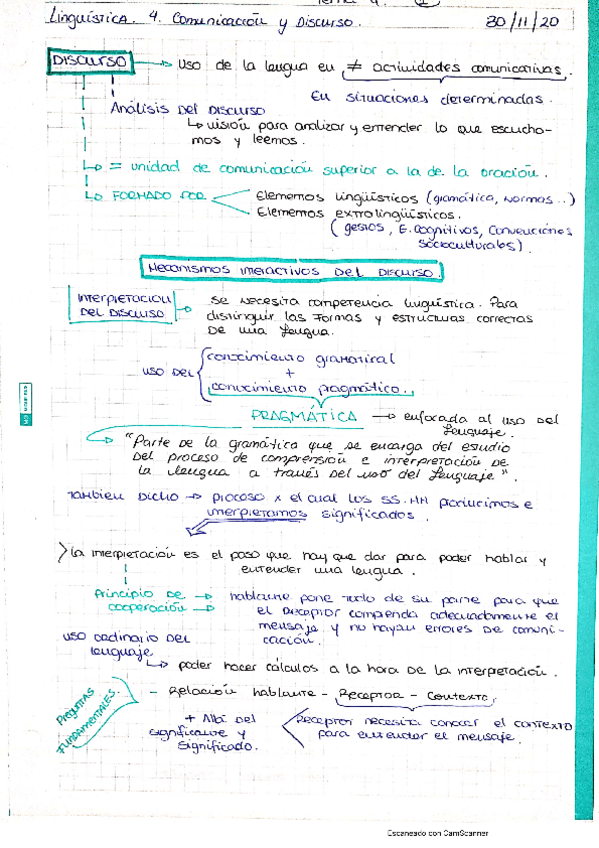 Lingüística. 4. Comunicación y Discurso. 30/11/20
DISCURSO → uso de la lengua en ≠ actividades comunicativas.
En situaciones determinadas.
Análisis del discurso
↳ visión para analizar y entender lo que escucha-
mos y leemos.
↳ = unidad de comunicación superior a la de la oración.
↳ FORMADO POR
Elementos lingüísticos (gramática, normas..)
Elementos extralingüísticos.
(gestos, E. cognitivos, convenciones
socioculturales).
Mecanismos interactivos del discurso.
Interpretación
del discurso
→ se necesita competencia lingüística. Para
distinguir las formas y estructuras correctas
de una lengua.
uso del
conocimiento gramatical
+
conocimiento pragmático.
PRAGMÁTICA → enfocada al uso del
lenguaje.
"Parte de la gramática que se encarga del estudio
del proceso de comprensión e interpretación de
la lengua a través del uso del lenguaje".
También dicho → proceso x el cual los SS.HH percibimos e
interpretamos significados.
> la interpretación es el paso que hay que dar para poder hablar y
entender una lengua.
Principio de
cooperación
→ hablante pone todo de su parte para que
el receptor comprenda adecuadamente el
mensaje y no hayan errores de comuni-
cación.
uso ordinario del
lenguaje
↳ poder hacer cálculos a la hora de la interpretación.
Preguntas
fundamentales.
- Relación hablante - Receptor - Contexto.
+ Allá del
significante y
significado.
Receptor necesita conocer el contexto
para entender el mensaje.
Escaneado con CamScanner